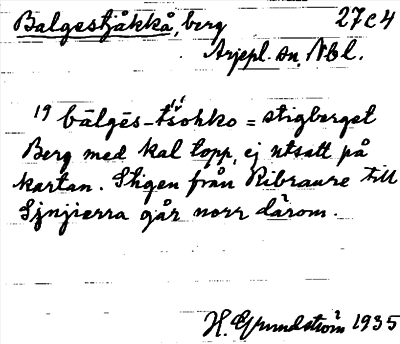 Balgestjåkkå, berg 27c4
Arjepl. sn, Nbl.
19 bālgēs-tšohko = stigberget
Berg med kal topp, ej utsatt på
kartan. Stigen från Ribraure till
går norr därom.
H. Grundström 1935